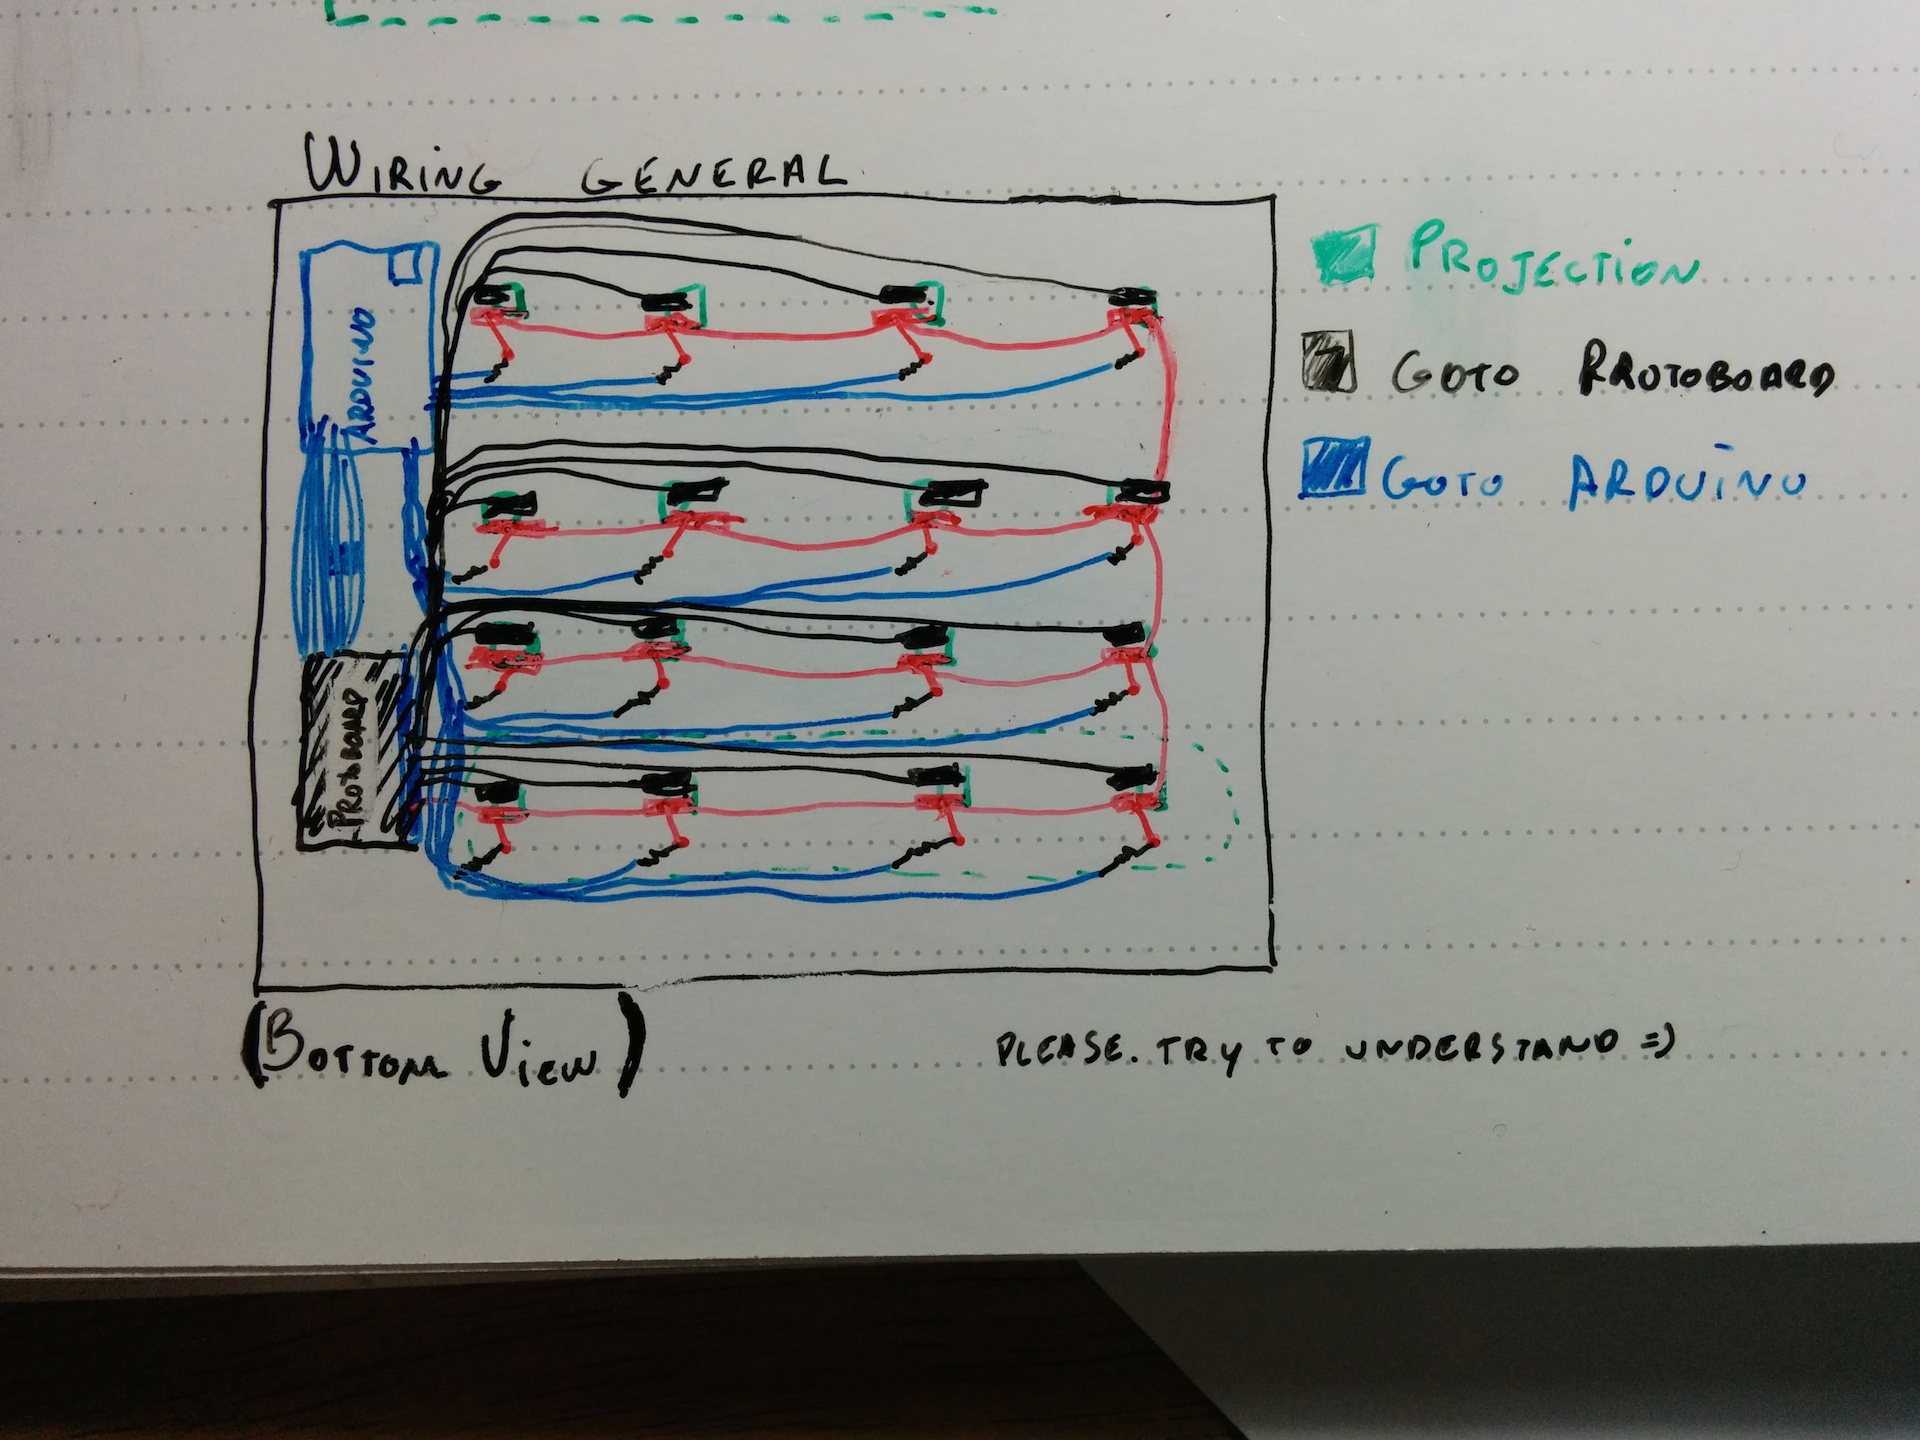 WIRING GENERAL
ARDUINO
PROTOBOARD
PROJECTION
GOTO PROTOBOARD
GOTO ARDUINO
(BOTTOM VIEW)
PLEASE. TRY TO UNDERSTAND =)